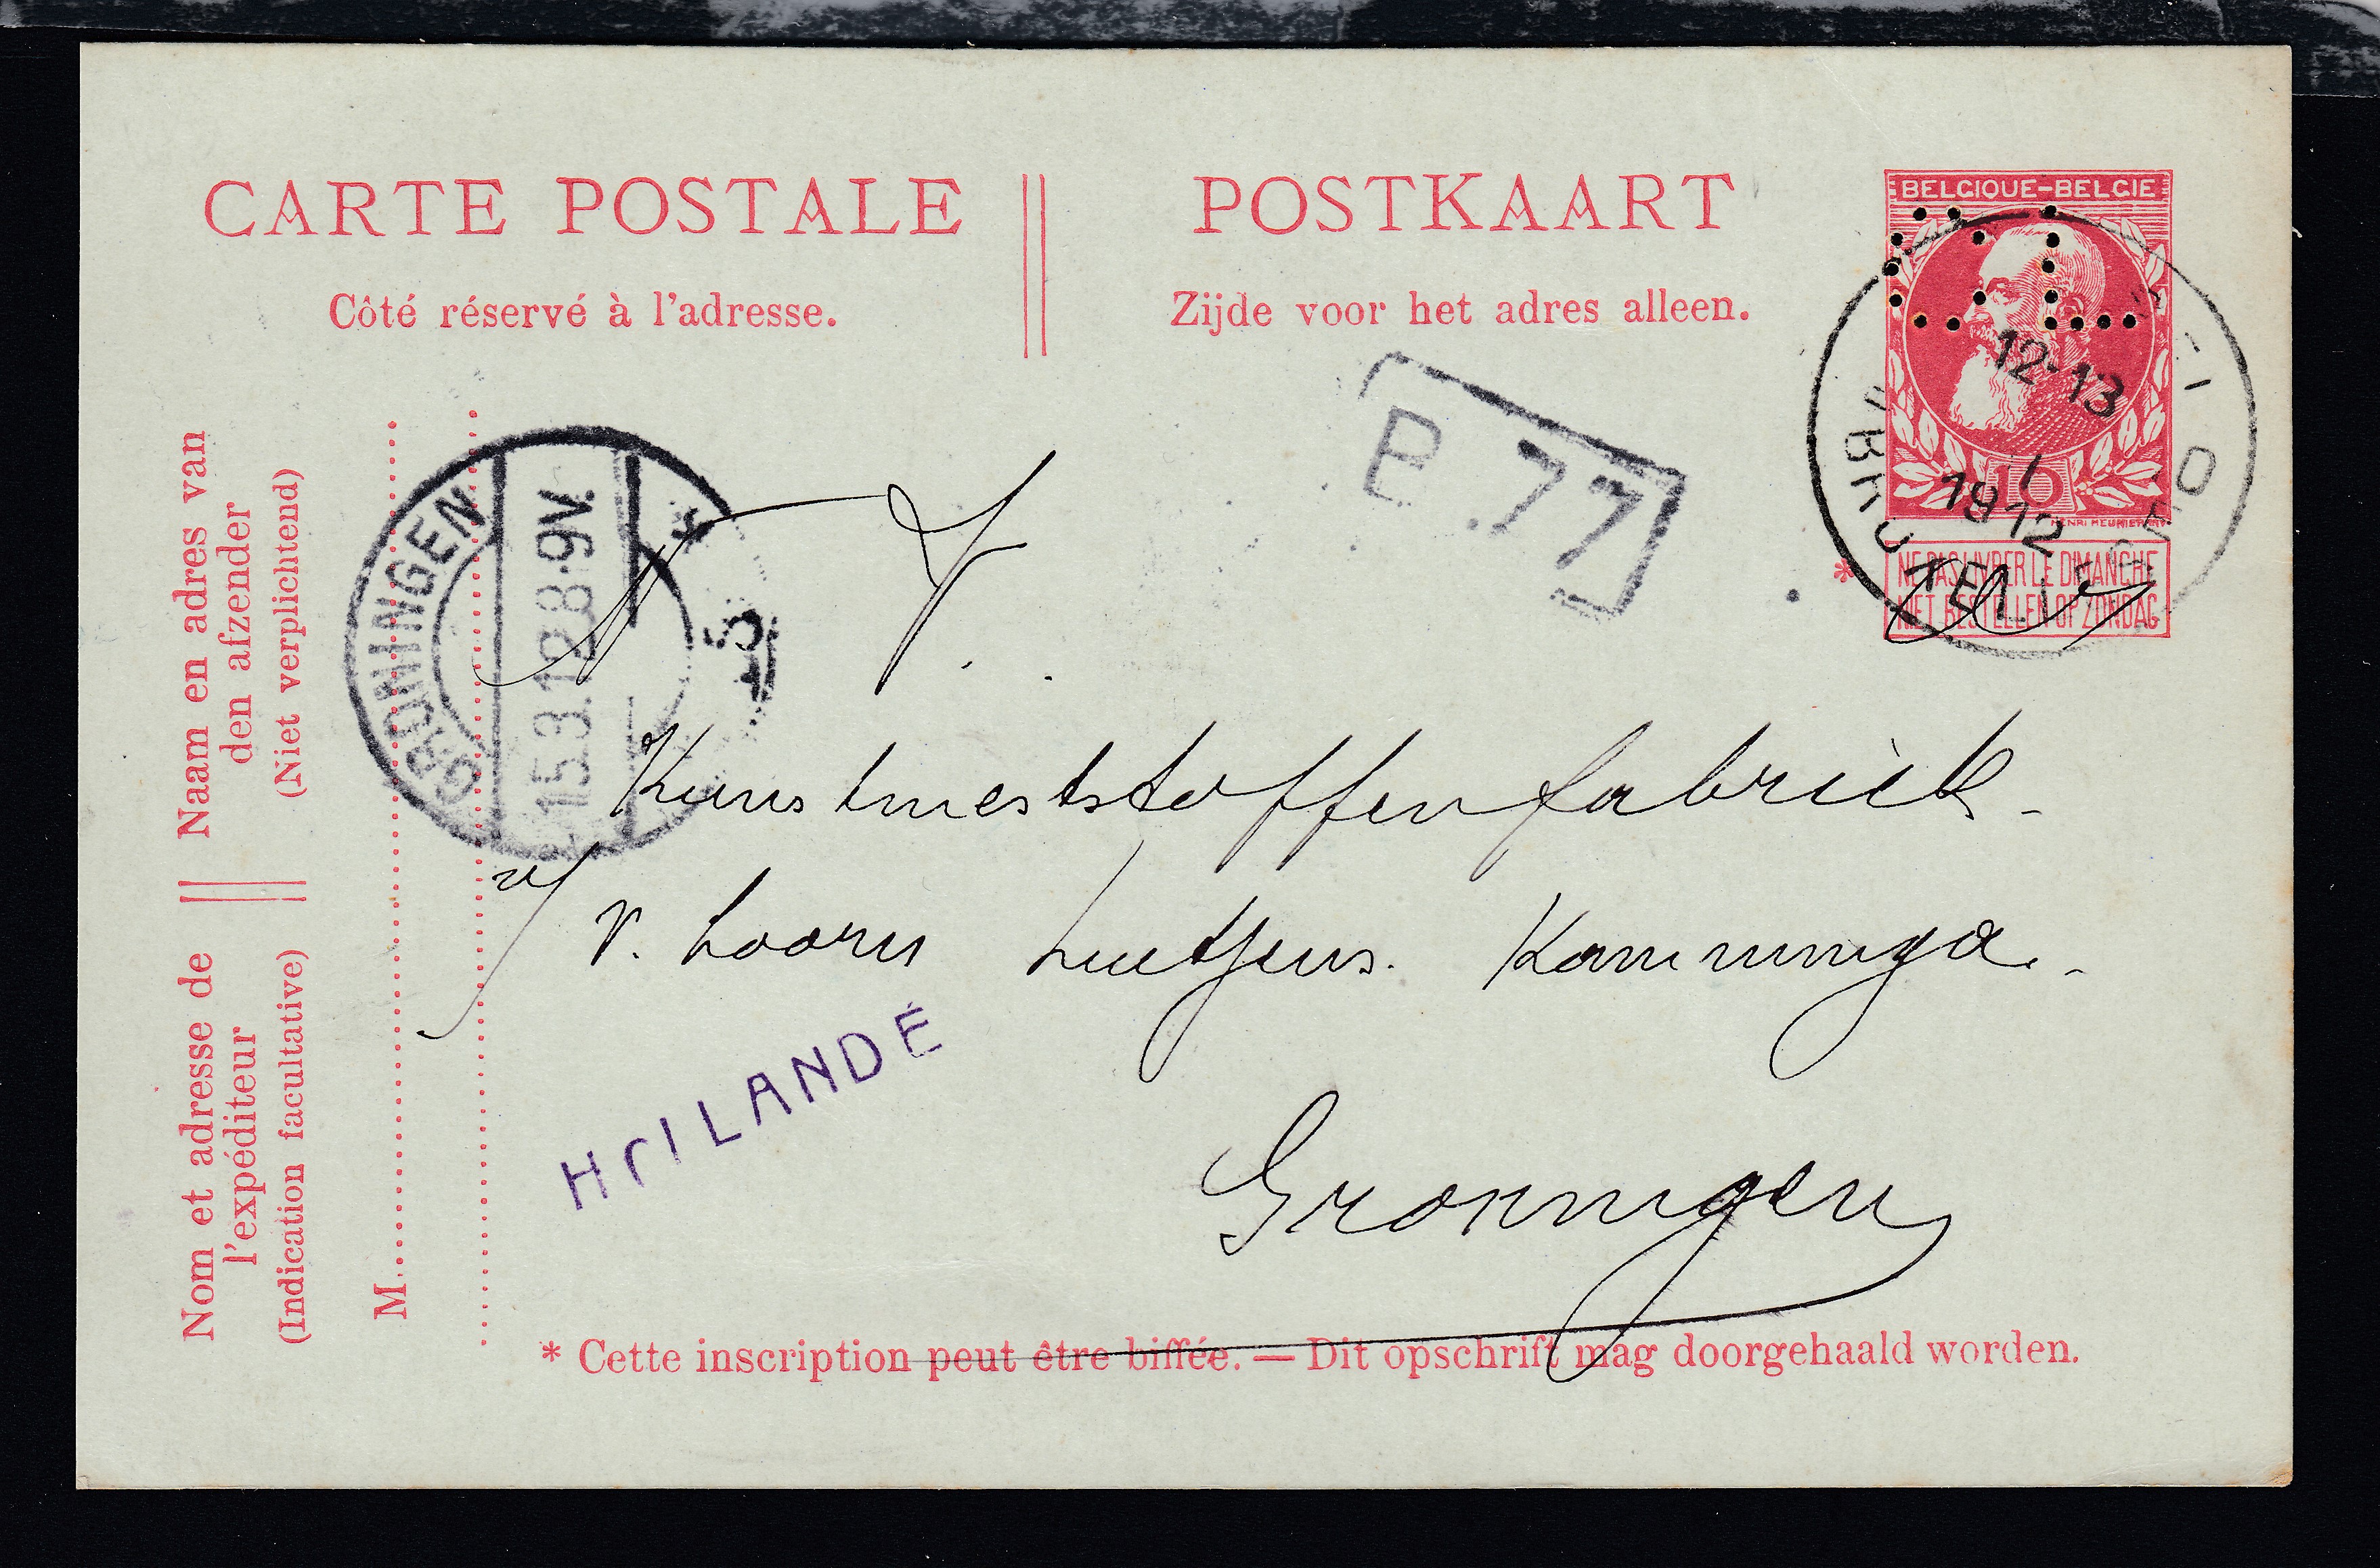 CARTE POSTALE
POSTKAART
Côté réservé à l'adresse.
Zijde voor het adres alleen.
BELGIQUE-BELGIE
10
HENRI MEUNIER INV
NE PAS LIVRER LE DIMANCHE
NIET BESTELLEN OP ZONDAG
*
12-13
1912
P. 77
GRONINGEN
15.3.12.8-9V.
* 5
N V.
Kunstmeststoffenfabriek
v/ v. Hoorn Luitjens. Kamminga.
HOLLANDE
Groningen
Naam en adres van
den afzender
(Niet verplichtend)
Nom et adresse de
l'expéditeur
(Indication facultative)
M
* Cette inscription peut être biffée. — Dit opschrift mag doorgehaald worden.